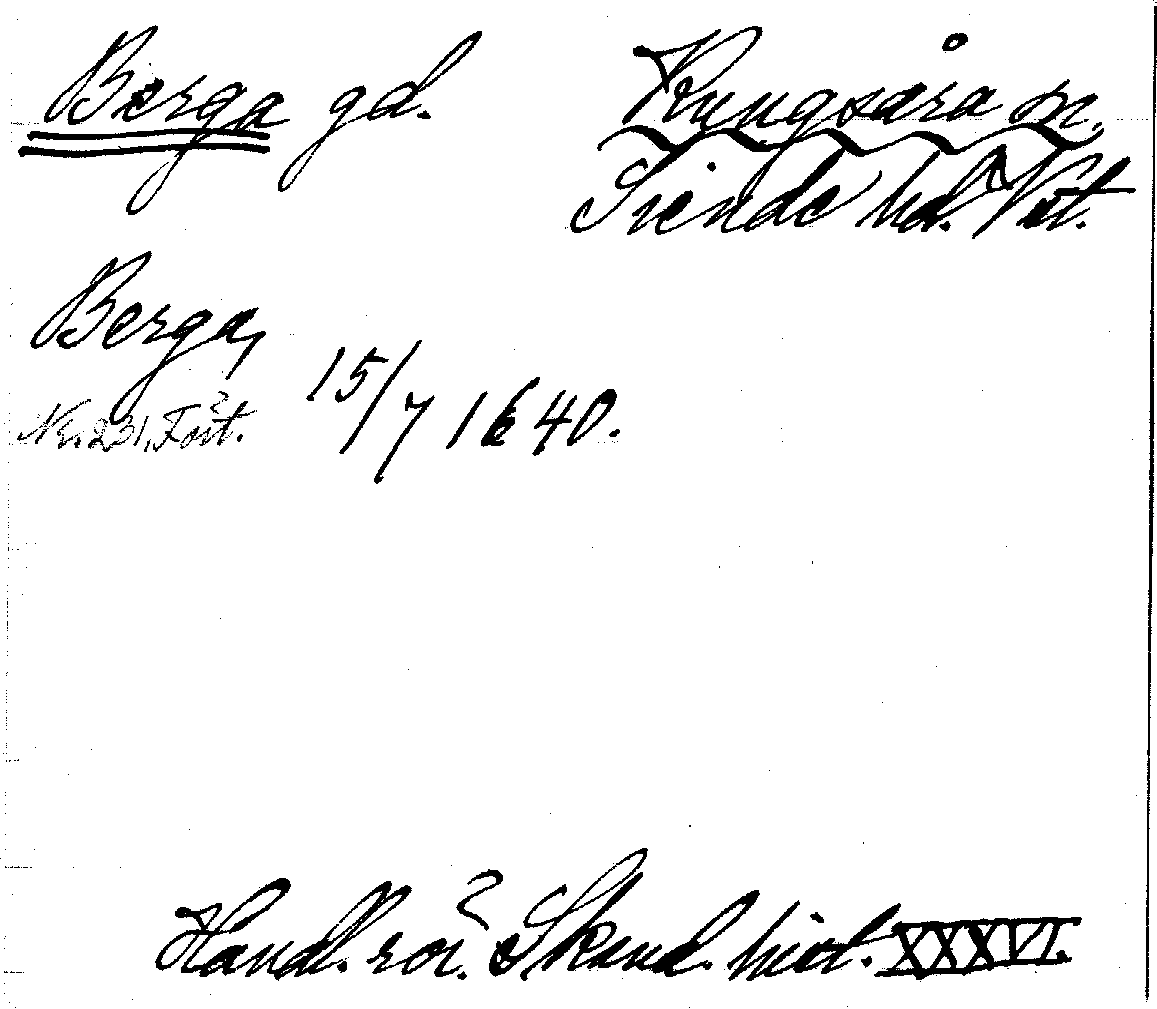 Berga gd. Kungsåra sn.
Siende hd. Vst.
Berga,
Nr. 231, Fört. 15/7 1640.
Handl. rör. Skand. hist. XXXVI.